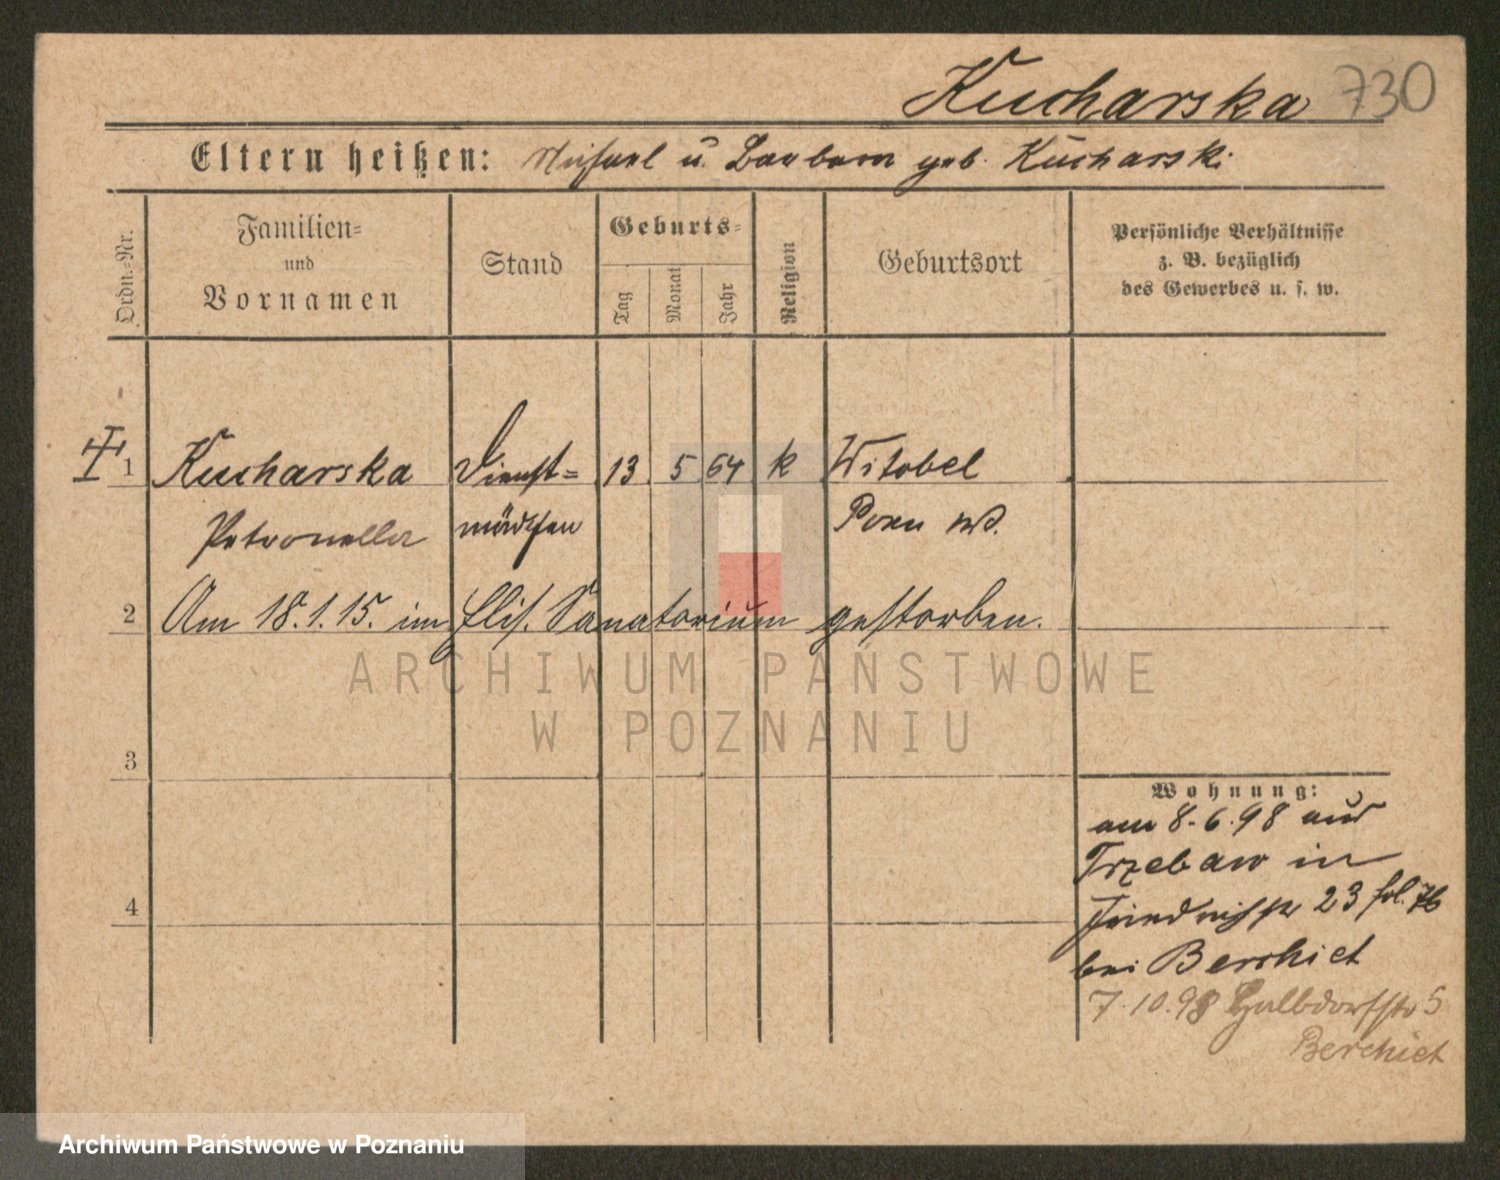 Kucharska 730
Eltern heißen: Michael u. Barbara geb. Kucharski
Ordn.-Nr.
Familien-
und
Vornamen
Stand
Geburts-
Tag
Monat
Jahr
Religion
Geburtsort
Persönliche Verhältnisse
z. B. bezüglich
des Gewerbes u. s. w.
1 Kucharska Dienst= 13 5 64 k Witobel
Petronella mädchen Posen W.
2 Am 18.1.15. im Elis. Sanatorium gestorben.
3
4
Wohnung:
am 8.6.98 aus
Trzebaw in
Friedrichstr 23 fol. 76
bei Berchiet
7.10.98 Halbdorfstr 5
Berchiet
ARCHIWUM PAŃSTWOWE
W POZNANIU
Archiwum Państwowe w Poznaniu